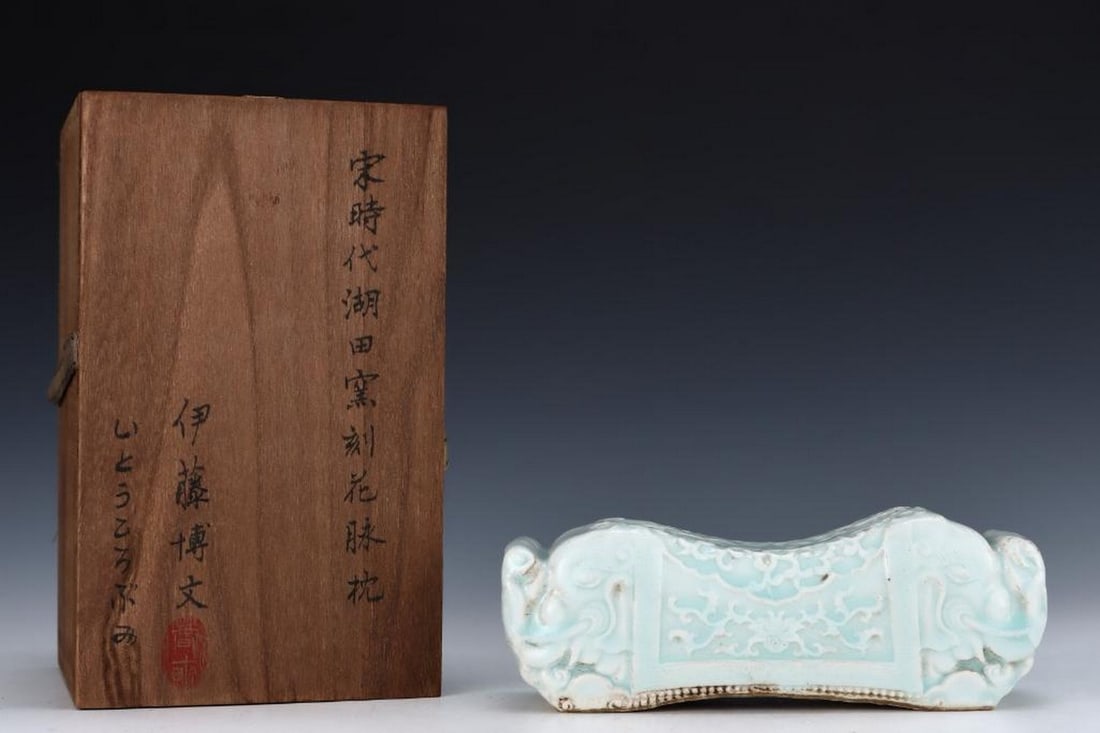 宋時代湖田窯刻花脉枕
伊藤博文
いとうころぶみ